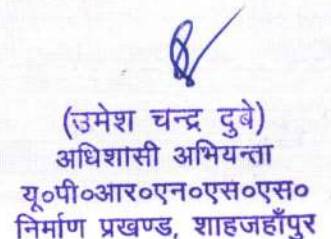 (उमेश चन्द्र दुबे)
अधिशासी अभियन्ता
यू०पी०आर०एन०एस०एस०
निर्माण प्रखण्ड, शाहजहाँपुर